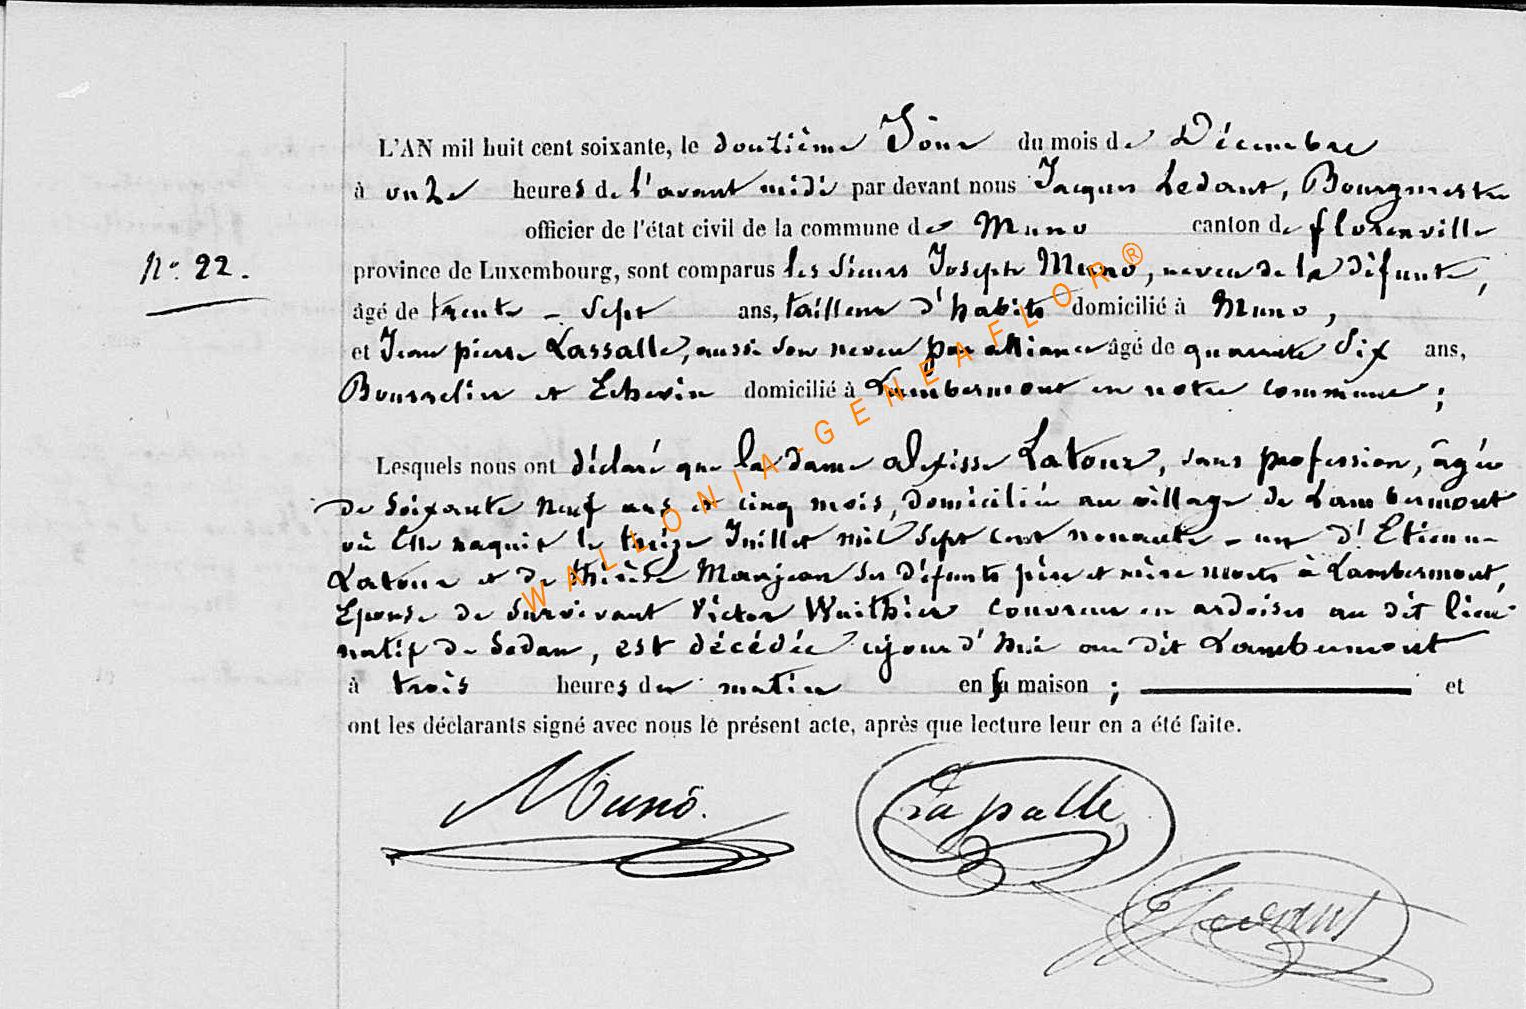 L'AN mil huit cent soixante, le douzième Jour du mois de Décembre
à onze heures de l'avant midi par devant nous Jacques Ledant, Bourgmestre
officier de l'état civil de la commune de Muno canton de florenville
N° 22.
province de Luxembourg, sont comparus les Sieurs Joseph Muno, neveu de la défunte,
âgé de trente - Sept ans, tailleur d'habits domicilié à Muno,
et Jean pierre Lassalle, aussi son neveu par alliance âgé de quarante Six ans,
et Echevin domicilié à Lambermont en notre commune ;
Lesquels nous ont déclaré que la dame alexisse Latour, sans profession, âgée
de Soixante Neuf ans et cinq mois, domiciliée au village de Lambermont
où Elle naquit le treize Juillet mil Sept cent nonante - un d'Etienne
Latour et de thérèse Manjean Ses défunts père et mère morts à Lambermont,
Epouse de Survivant Victor Wuithier Couvreur en ardoises au dit lieu
natif de Sedan, est décédée cejourd'hui au dit Lambermont
à trois heures du matin en sa maison ; et
ont les déclarants signé avec nous le présent acte, après que lecture leur en a été faite.
Muno.
Lassalle
JLedant
WALLONIA-GENEAFLOR®